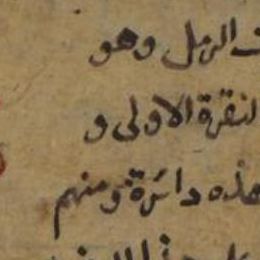 الرمل وهو
النقرة الاولى و
هذه دائرة ومنهم